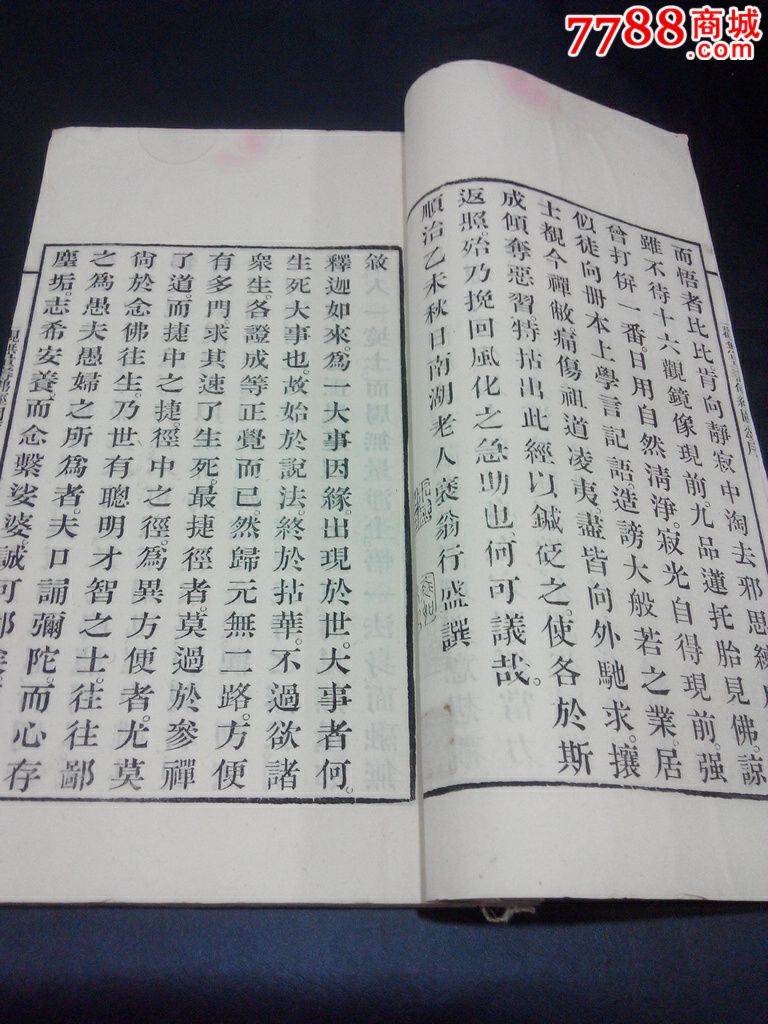 7788商城
.com
而悟者比比肯向靜寂中淘去邪思
雖不待十六觀鏡像現前九品蓮托胎見佛諒
曾打併一番日用自然淸淨寂光自得現前强
似徒向冊本上學言記語造謗大般若之業居
士覩今禪敝痛傷祖道凌夷盡皆向外馳求攘
成傾奪惡習特拈出此經以鍼砭之使各於斯
返照殆乃挽回風化之急助也何可議哉
順治乙未秋日南湖老人
翁行盛譔
敘
釋迦如來爲一大事因緣出現於世大事者何
生死大事也故始於說法終於拈華不過欲諸
衆生各證成等正覺而已然歸元無二路方便
有多門求其速了生死最捷徑者莫過於參禪
了道而捷中之捷徑中之徑爲異方便者尤莫
尙於念佛往生乃世有聰明才智之士往往鄙
之爲愚夫愚婦之所爲者夫口誦彌陀而心存
塵垢志希安養而念繫娑婆誠可鄙